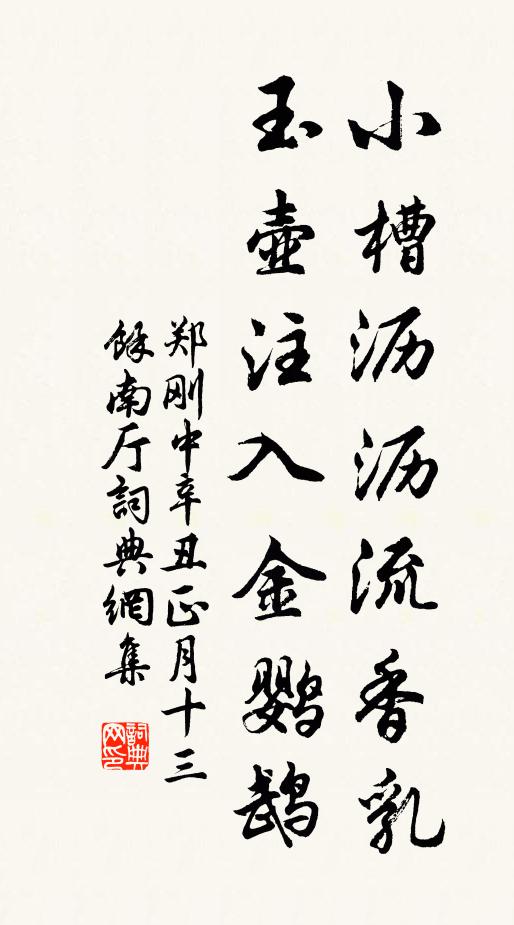 小槽沥沥流香乳
玉壶注入金鹦鹉
郑刚中辛丑正月十三
馀南厅詞典網集
詞典网印